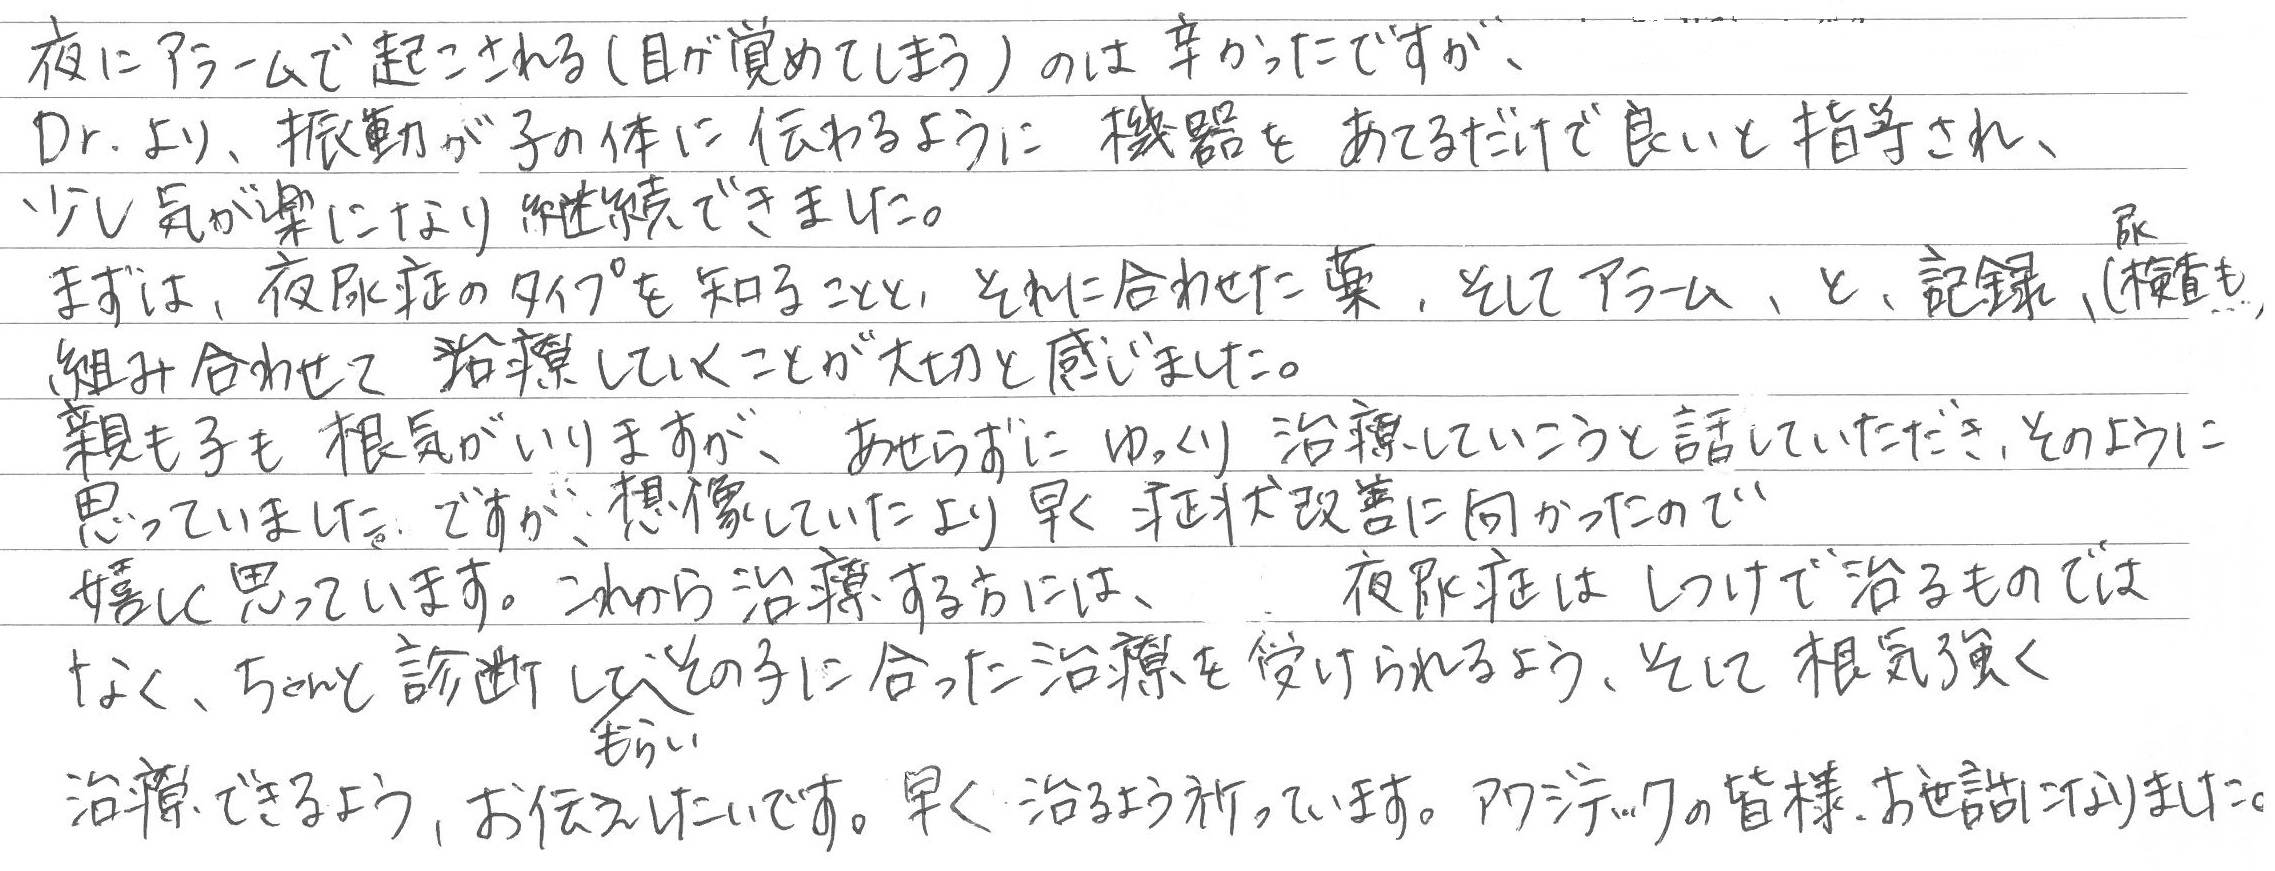 夜にアラームで起こされる(目が覚めてしまう)のは辛かったですが、
Dr.より、振動が子の体に伝わるように機器をあてるだけで良いと指導され、
少し気が楽になり継続できました。
まずは、夜尿症のタイプを知ることと、それに合わせた薬、そしてアラーム、と、記録、(尿検査も)
組み合わせて治療していくことが大切と感じました。
親も子も根気がいりますが、あせらずにゆっくり治療していこうと話していただき、そのように
思っていました。ですが、想像していたより早く症状改善に向かったので
嬉しく思っています。これから治療する方には、夜尿症はしつけで治るものでは
なく、ちゃんと診断してもらいその子に合った治療を受けられるよう、そして根気強く
治療できるよう、お伝えしたいです。早く治るよう祈っています。アワジテックの皆様、お世話になりました。